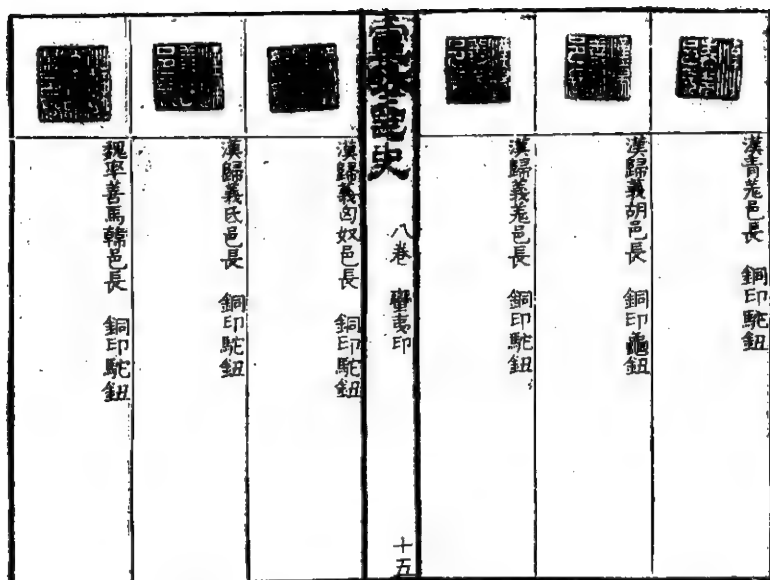 漢青羌邑長 銅印駝鈕
漢歸義胡邑長 銅印龜鈕
漢歸義羌邑長 銅印駝鈕
史
八卷 蠻夷印
十五
漢歸義匈奴邑長 銅印駝鈕
漢歸義氐邑長 銅印駝鈕
魏率善馬韓邑長 銅印駝鈕